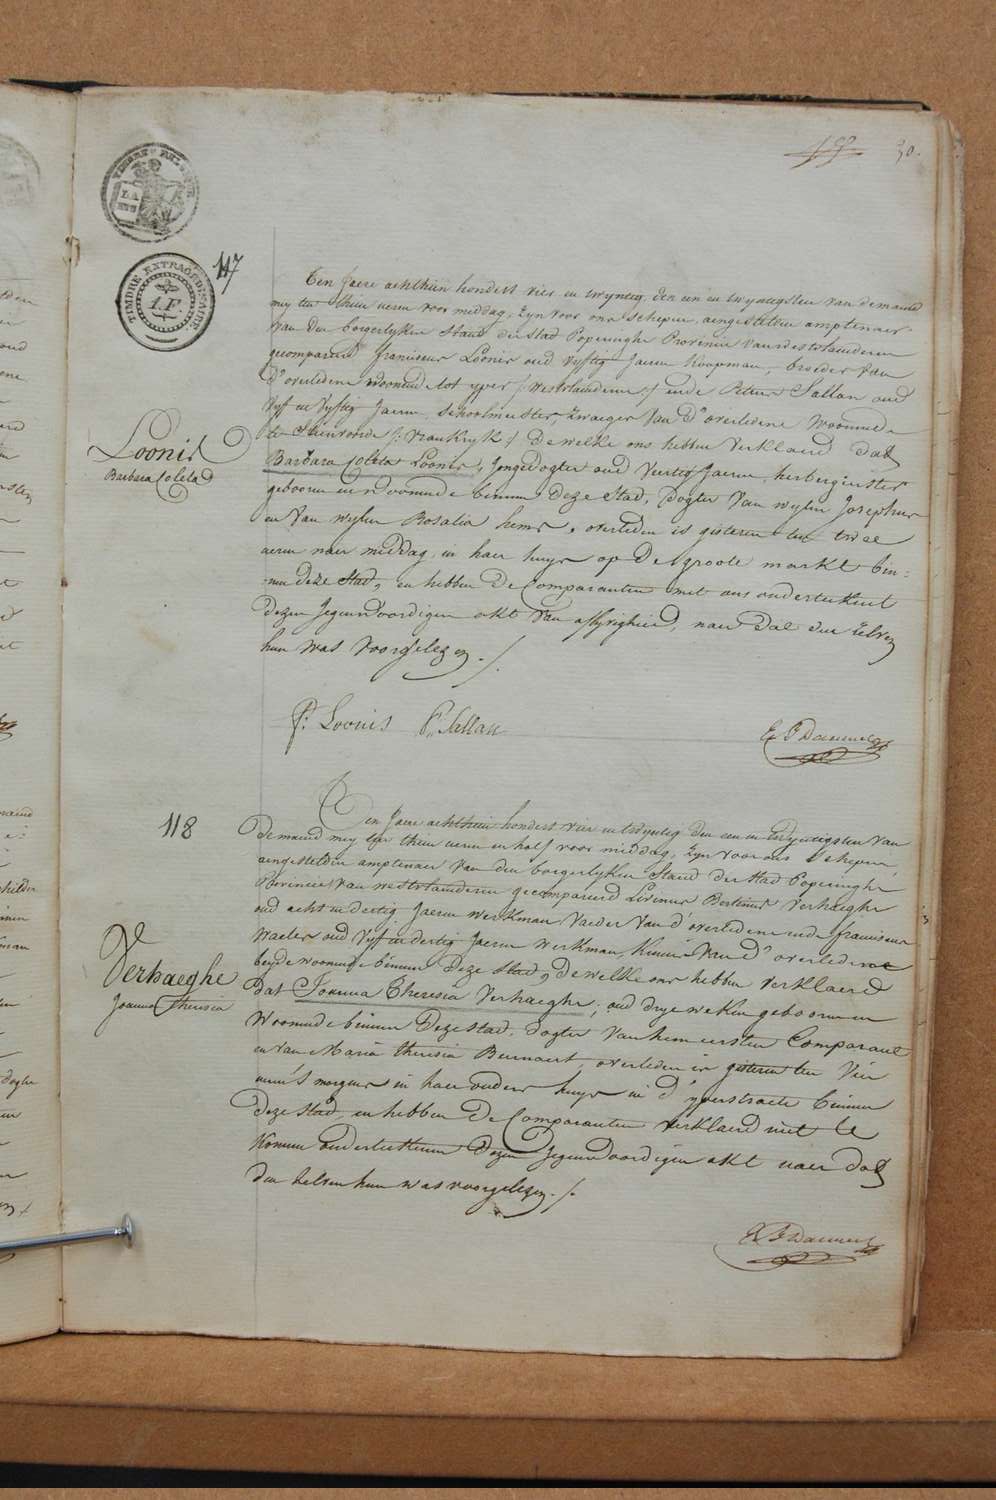 30.
TIMBRE EXTRAORDINAIRE
1. F.
117
Den Jaere achthien hondert vier en twyntig den een en twyntigsten van de maend
mey ten thien ueren voor middag, zyn voor ons schepen, aengestelden amptenaer
van den borgerlyken Stand der stad Poperinghe Provintie van westvlaenderen
gecompareerd franciscus Loonis oud vyftig Jaeren Koopman, broeder van
d'overledene woonende tot yper /: westvlaenderen :/ ende Petrus Sallau oud
Vyf en Vyftig Jaeren, Schoolmeester, zwaeger van d'overledene woonende
te Steenvoorde /: vrankryk :/ De welke ons hebben verklaerd dat
Loonis
Barbara Coleta
Barbara Coleta Loonis, Jongedogter oud veertig Jaeren, herbergierster
gebooren en woonende binnen deze Stad, dogter van wylen Josephus
en van wylen Rosalia hems, overleden is gisteren ten twee
ueren naer middag, in haer huys op de groote markt bin=
=nen deze Stad, en hebben de Comparanten met ons onderteekent
dezen Jegenwoordigen akt van aflyvigheid, naer dat den zelven
hun was voorgelezen ./.
f: Loonis P: Sallau
118
Den Jaere achthien hondert vier en twyntig den een en twyntigsten van
de maend mey ten thien ueren en half voor middag, zyn voor ons Schepen
aengestelden amptenaer van den borgerlyken Stand der stad Poperinghe
Provintie van westvlaenderen gecompareerd Livinus Bertinus Verhaeghe
oud acht en dertig Jaeren werkman Vaeder van d'overledene ende franciscus
Waeles oud Vyf en dertig Jaeren werkman, Kennis van d'overledene
beyde woonende binnen deze Stad, de welke ons hebben verklaerd
Verhaeghe
Joanna Theresia
dat Joanna Theresia Verhaeghe, oud drye weken gebooren en
Woonende binnen deze stad, dogter van hem eersten Comparant
en van Maria Theresia Beernaert, overleden is gisteren ten Vier
ueren 's morgens in haer ouders huys in d'yperstraete binnen
deze stad, en hebben de Comparanten verklaerd niet te
Konnen onderteekenen dezen Jegenwoordigen akt naer dat
den zelven hun was voorgelezen ./.